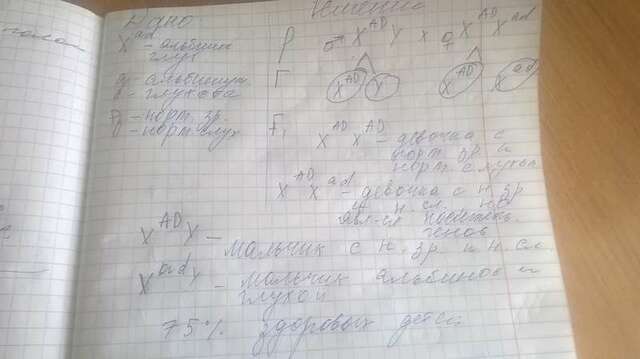 Дано
X^ad - альбин
глух
a - альбинизм
d - глухота
A - норм. зр.
D - норм слух
Решение
P ♂ X^AD Y x ♀ X^AD X^ad
Г X^AD Y X^AD X^ad
F₁ X^AD X^AD - девочка с
норм. зр и
норм. слухом
X^AD X^ad - девочка с н. зр
и н. сл. но
явл-ся носитель.
генов
X^AD Y - мальчик с н. зр и н. сл.
X^ad Y - мальчик альбинос и
глухой
75% здоровых детей